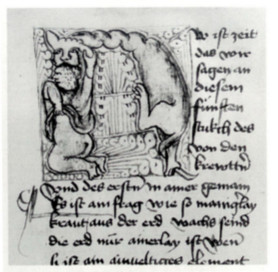 Es ist zeit
das wir
sagen an
diesem
fünften
stukch des
von den
krewttn
vnd des erstn In ainer gemain
Es ist ain frag wie so manigslay
kraut aus der erd wachs seind
die erd nür ainerlay ist wen
si ist ain ainueltigs element